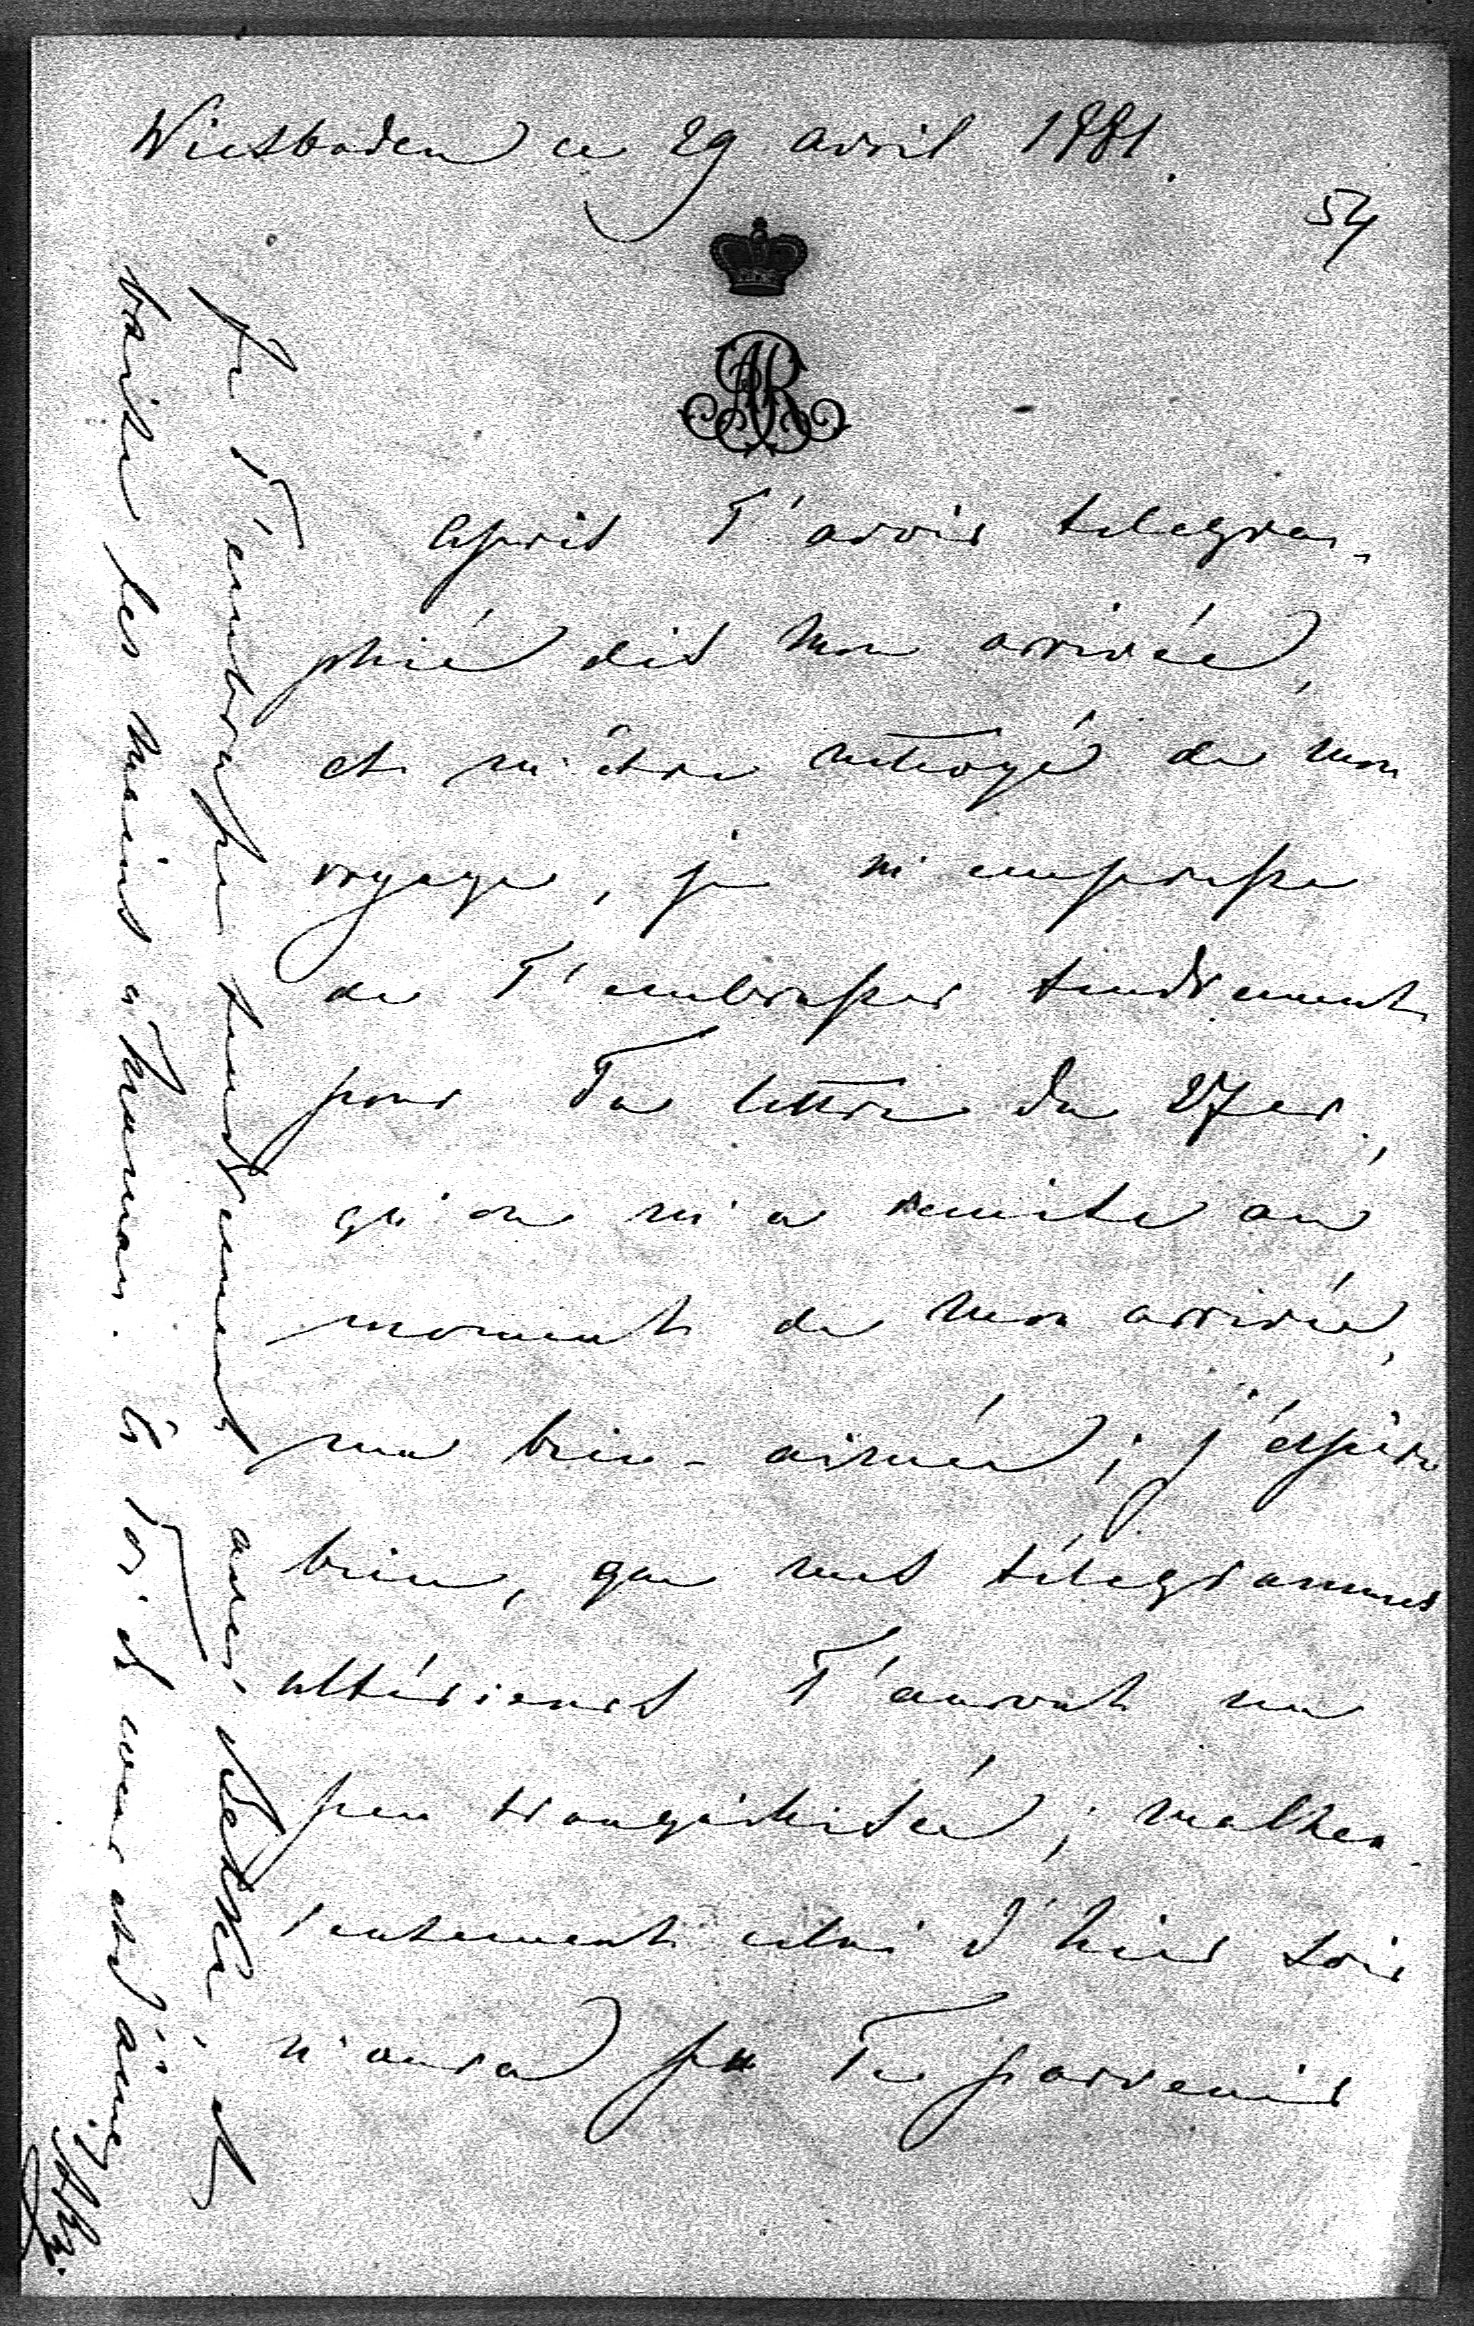 Wiesbaden ce 29 avril 1881.
54
AR
Après T'avoir telegra-
phié dès mon arrivée,
et m'être nettoyé de mon
voyage, je m'empresse
de T'embrasser tendrement
pour Ta lettre du 27 cr,
qu'on m'a remise au
moment de mon arrivée,
ma bien-aimée; j'éspère
bien, que mes télégrammes
ultérieurs T'auront un
peu tranquilisée; malheu-
reusement celui d'hier soir
n'aura pu Te parvenir
Je T'embrasse tendrement avec Betsy, et
baise les mains à Maman. à Toi de coeur et d'âme,